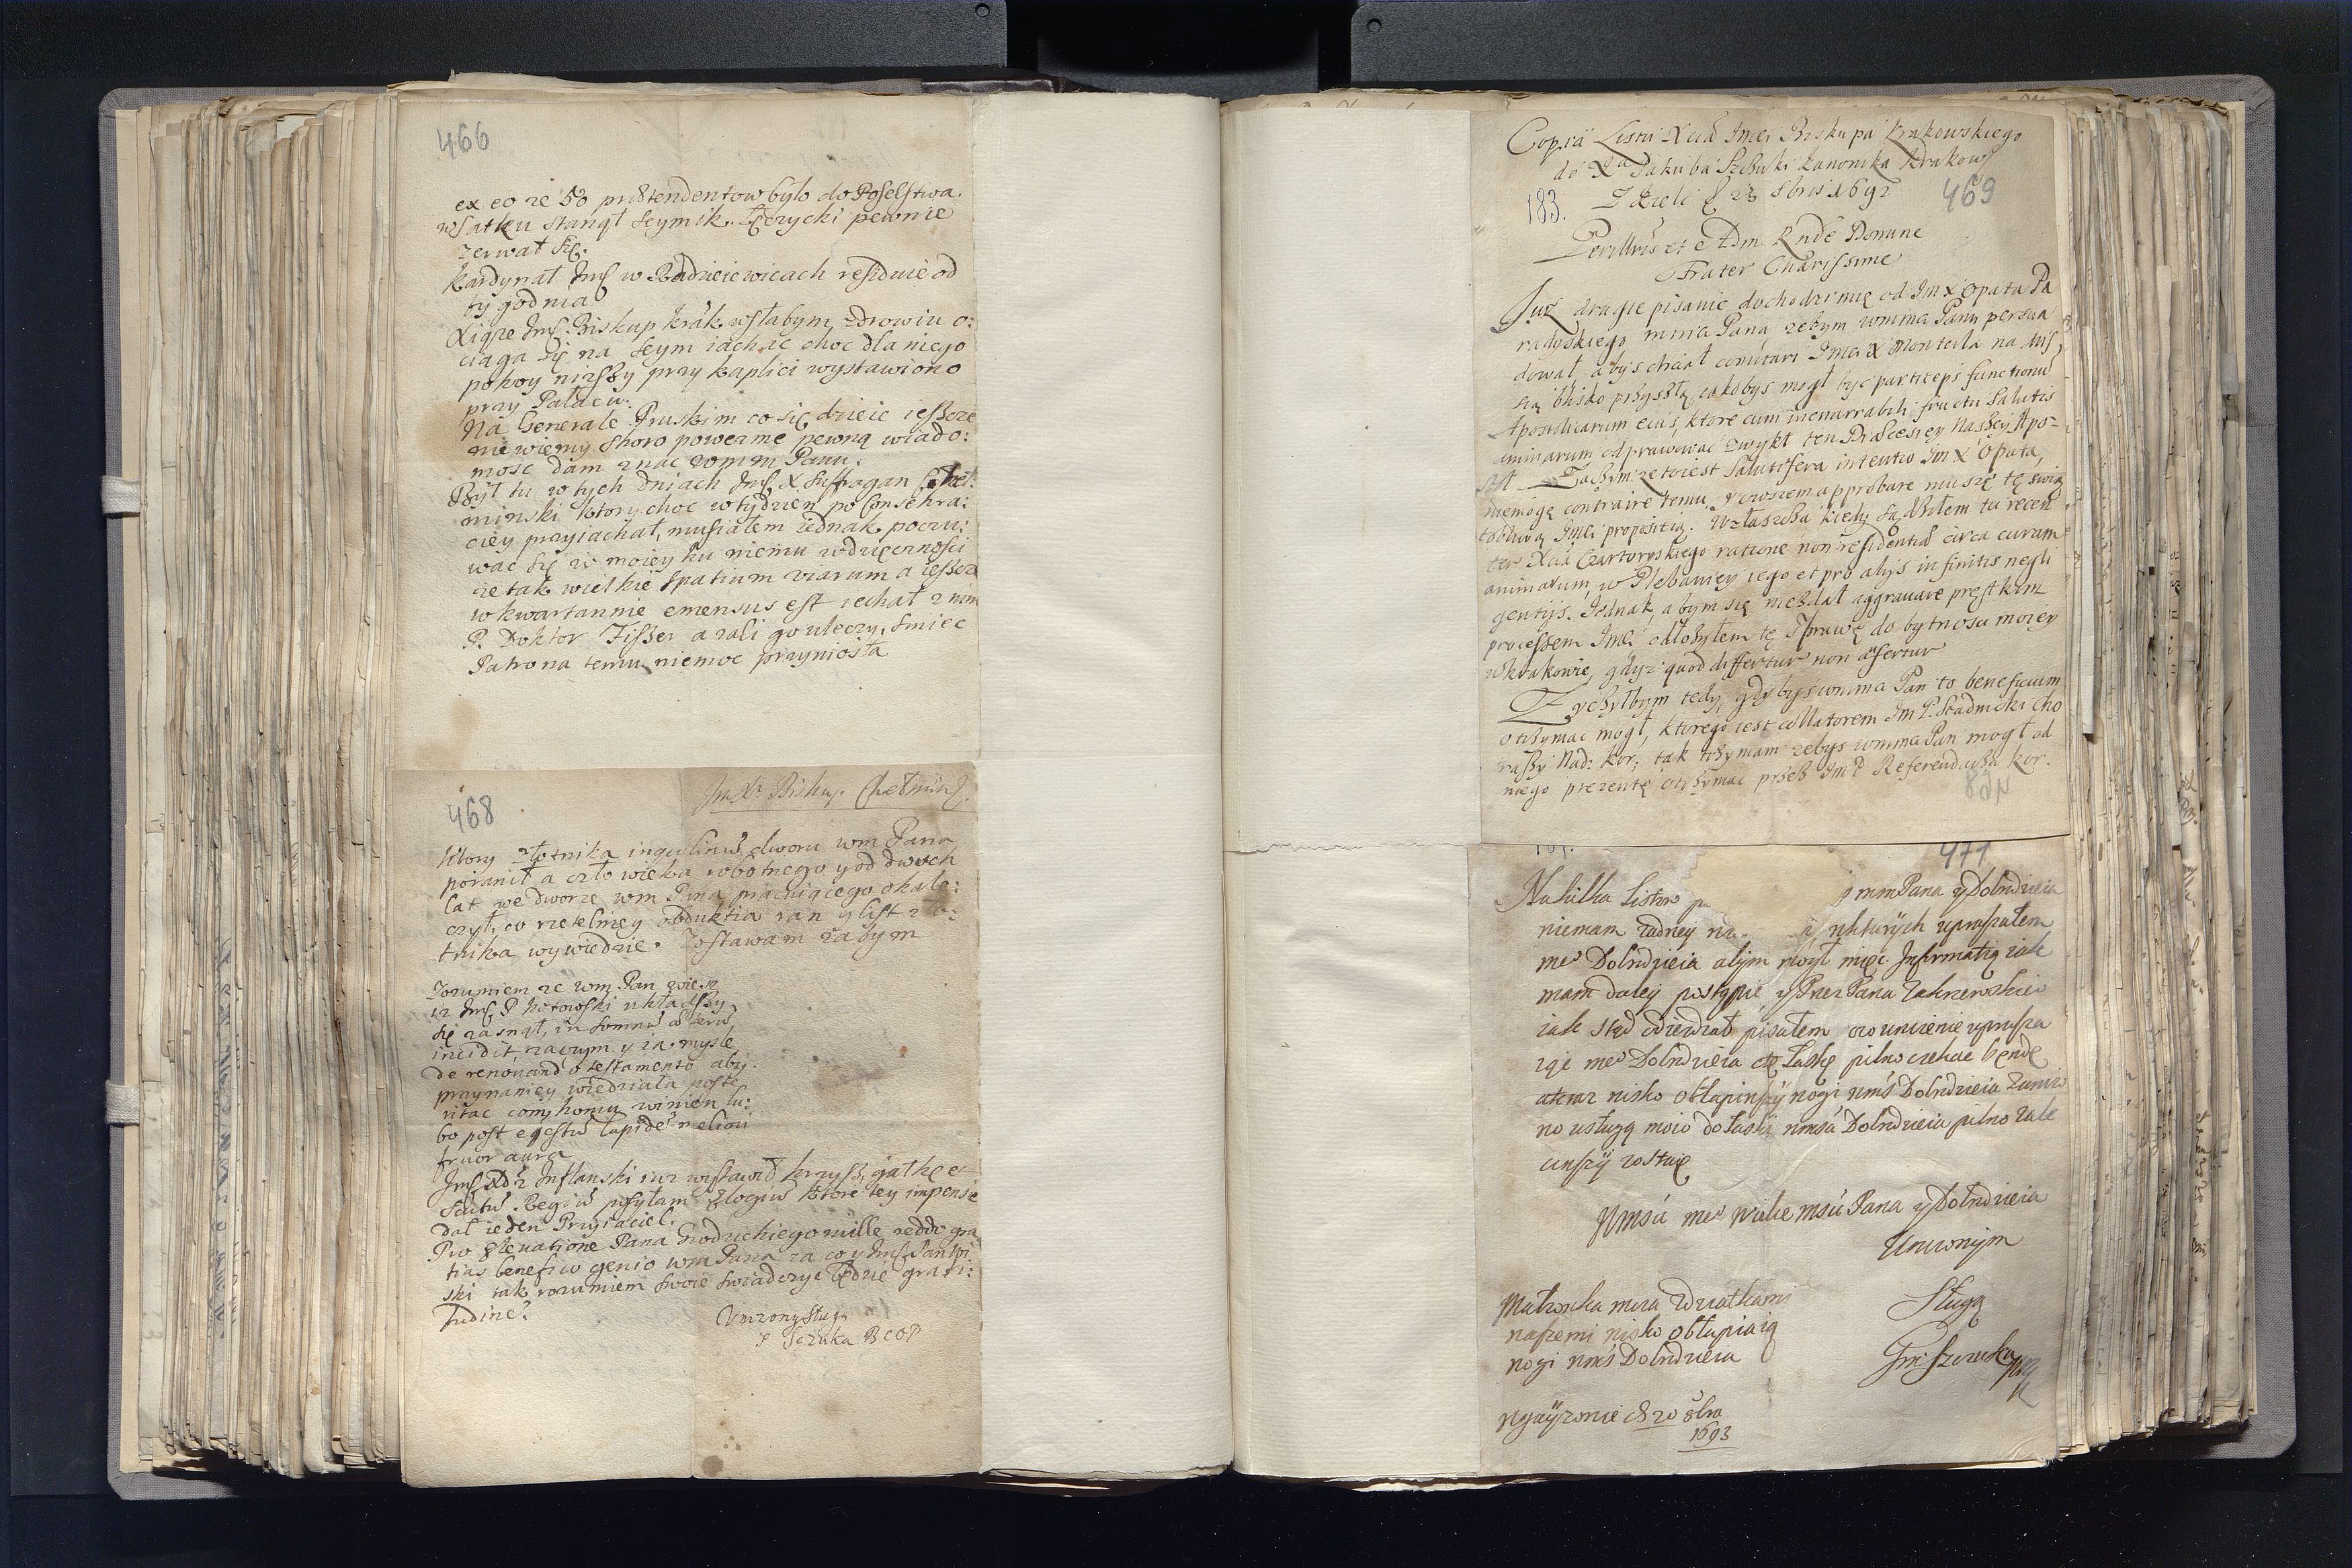 466
ex eo że 50 prætendentow było do Poselstwa.
stanął seymik. Łęczycki pewnie
zerwał się.
Kardynał Jmsć w Radzieiewicach residuie od
tygodnia
Xiąże Jmsć Biskup krak. w słabym zdrowiu o:
ciąga się na seym iachać choc dla niego
pokoy niższy przy kaplici wystawiono
przy Pałacu.
Na Generale Pruskim co się dzieie iessze
nie wiemy skoro powezme pewną wiado:
mosc dam znac wmm Panu.
Był tu w tych dniach Jmsć X Suffragan
minski ktory choc w tydzien po Consekra:
ciey przyiachał, musiałem iednak poczu:
wac się w moiey ku niemu wdzięcznosci
że tak wielkie spatium viarum a iessze
w kwartannie emensus est iechał z nim
P. Doktor Fisser a zali go uleczy, smiec
Patrona temu niemoc przyniosła
468
Jm Xdz Biskup Chełmiń.
ktory złotnika inquilinum dworu wm Pana
poranił a człowieka robotnego y od dwuch
lat we dworze wm Pana pracuiącego okale:
czył, co rzetelniey obduktia ran y list zło:
tnika wywiedzie. Zostawam zabym
Rozumiem że wm Pan wiesz
iz Jmsć P Kotowski układszy
się zasnął, in somnum
incidit, zaczym y ia mysle
de renovando testamento aby
przynamniey wiedziała poste
ritas com komu winien lu:
bo post egestum lapidem meliori
fruor aura
Jmsć Xdz Inflanski iuz wystawił krzysz, gałkę et
scutum Regium posyłam Elogium ktore tey impense
dał ieden Przyiaciel.
Pro elevatione Pana Grodzickiego mille reddo gra
tias benefico genio wm Pana za co y Jmsć Pan
ski tak rozumiem swoie swiadczyc będzie grati:
tudinem.
Uniżony Sługa
S Sczuka B C O P
Copia Listu Xcia Jmci Biskupa Krakowskiego
do Xa Jakuba Szczuki kanonika Krakow
183. Z Kielc d 23 8bris 1692 469
Perillris et Adm Rnde Domine
Frater Charissime
Już drugie pisanie dochodzi mię od Jm X Opata Pa
radyskiego mma Pana, zebym wmma Pana persua
dował, abys chciał comitari Jmci X Montecla na Mis
sią blisko przyszłą, iakobys mogł byc particeps functionum
Apostolicarum eius, ktore cum inenarrabili fructu Salutis
animarum odprawowac zwykł ten Diæcesiey Naszey Apo-
stoł. Ża czym ze to iest salutifera intentio Jm X Opata,
niemogę contraire temu, y owszem approbare muszę tę swią
tobliwą Jmci propositią. Wzłaszcza kiedy sądziłem tu recen
ter Xcia Czartoryskiego ratione non residentiæ circa curam
animarum, w Plebaniey iego et pro alys infinitis negli
gentiis. Jednak, abym się niezdał aggravare prętkim
processem Jmci odłożyłem tę sprawę do bytnosci moiey
w Krakowie, gdyz quod differtur non aufertur
Życzyłbym tedy, gdy bys wmma Pan to beneficium
otrzymac mogł, ktorego iest collatorem Jm P. Stadnicki Cho
rąszy Nad: Kor; tak trzymam zebys wmma Pan mogł od
niego prezentę otrzymac przez Jm P Referendarza kor.
471
Na kilka listow mmPana y Dobrodzieia
niemam żadney w kturych upraszałem
meo Dobrodzieia abym mogł miec Informatią iak
mam daley postąpic y Przez Pana Zakrzewskieo
iak stąd odiezdzał pisałem oco unizenie uprasza
iąc meo Dobrodzieia o Łaskę pilno czekac bęndę
a teraz nisko obłapiwszy nogi wmsc Dobrodzieia Zemio
no usługą moio do Łaski wmsci Dobrodzieia pilno zale
ciwszy zostaię
Wmsci meo wielce msci Pana y Dobrodzieia
Unizonym
Sługą
Małzonka moia z dziatkami
naszemi nisko obłapiaią
nogi wmsc Dobrodzieia
d 20 8bra
1693